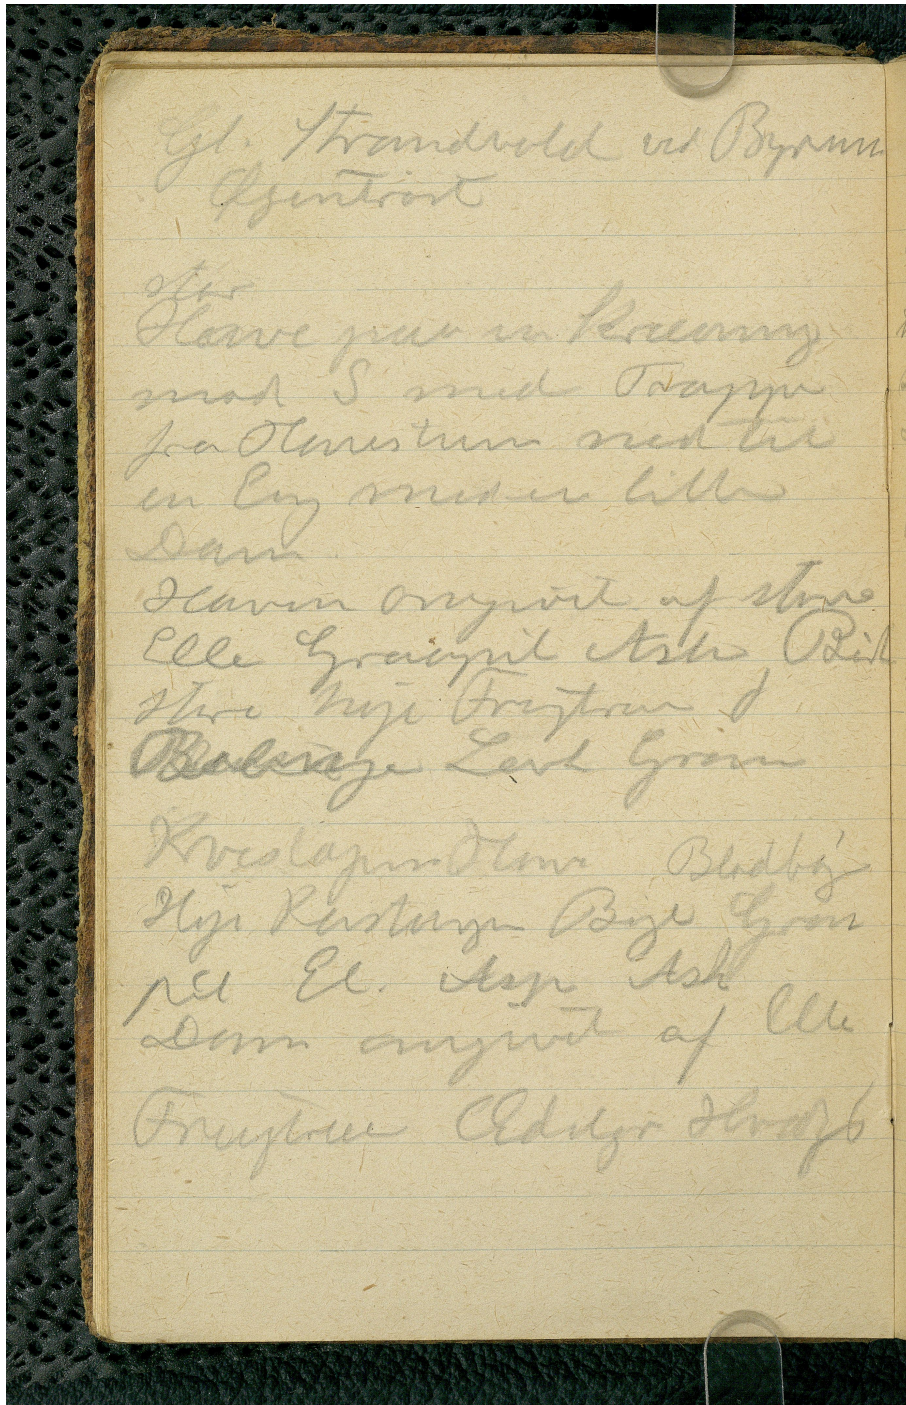 Gl. Strandvold ved Byrum
Øjentrøst
stor
Have paa en Skraaning
mod S med Trappe
fra Havestuen ned til
en Eng med en lille
Dam
Haven omgivet af store
Elle Graapil Ask Birk
store høje Frugttræer
Lærk Gran
Have Blodbøg
Høje Kastanjer Bøge Gran
pil El. Asp Ask
Dam omgivet af Elle
Frugttræer Ædelgr